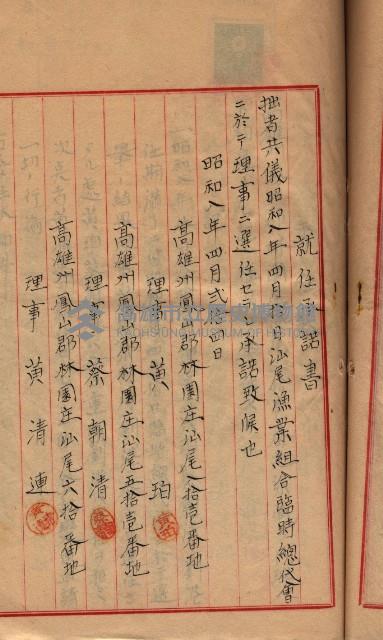 就任承諾書
拙者共儀昭和八年四月 日汕尾漁業組合臨時總代會
ニ於テ理事ニ選任セラレ承諾致候也
昭和八年四月弍拾四日
高雄州鳳山郡林園庄汕尾八拾壱番地
理事 黄 珀
高雄州鳳山郡林園庄汕尾五拾壱番地
理事 蔡朝清
高雄州鳳山郡林園庄汕尾六拾 番地
理事 黄清連
高雄市立歷史博物館
KAOHSIUNG MUSEUM OF HISTORY